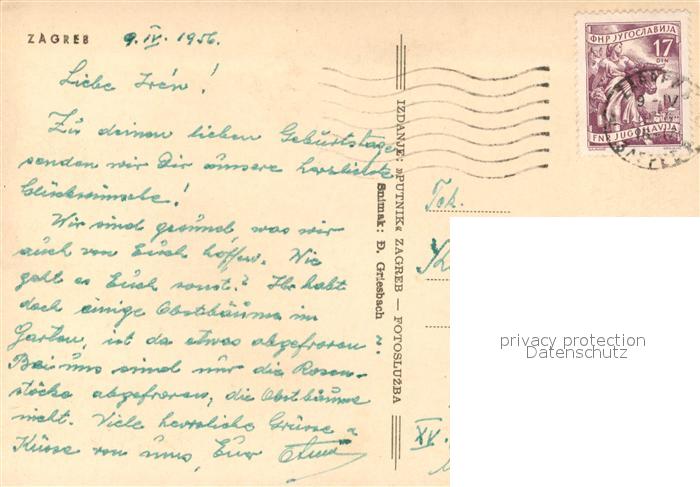 ZAGREB 9. IV. 1956.
Liebe Irén!
Zu deinem lieben Geburtstage
senden wir Dir unsere herzlichste
Glückwünsche!
Wir sind gesund, was wir
auch von Euch hoffen. Wie
geht es Euch sonst? Ihr habt
doch einige Obstbäume im
Garten, ist da etwas abgefroren?
Bei uns sind nur die Rosen-
stöcke abgefroren, die Obstbäume
nicht. Viele herzliche Grüsse u
Küsse von uns, Euer
IZDANJE: »PUTNIK« ZAGREB — FOTOSLUŽBA
Snimak: Đ. Griesbach
ФНР ЈУГОСЛАВИЈА
17
DIN
FNR JUGOSLAVIJA
9 - IV
XV.
privacy protection
Datenschutz